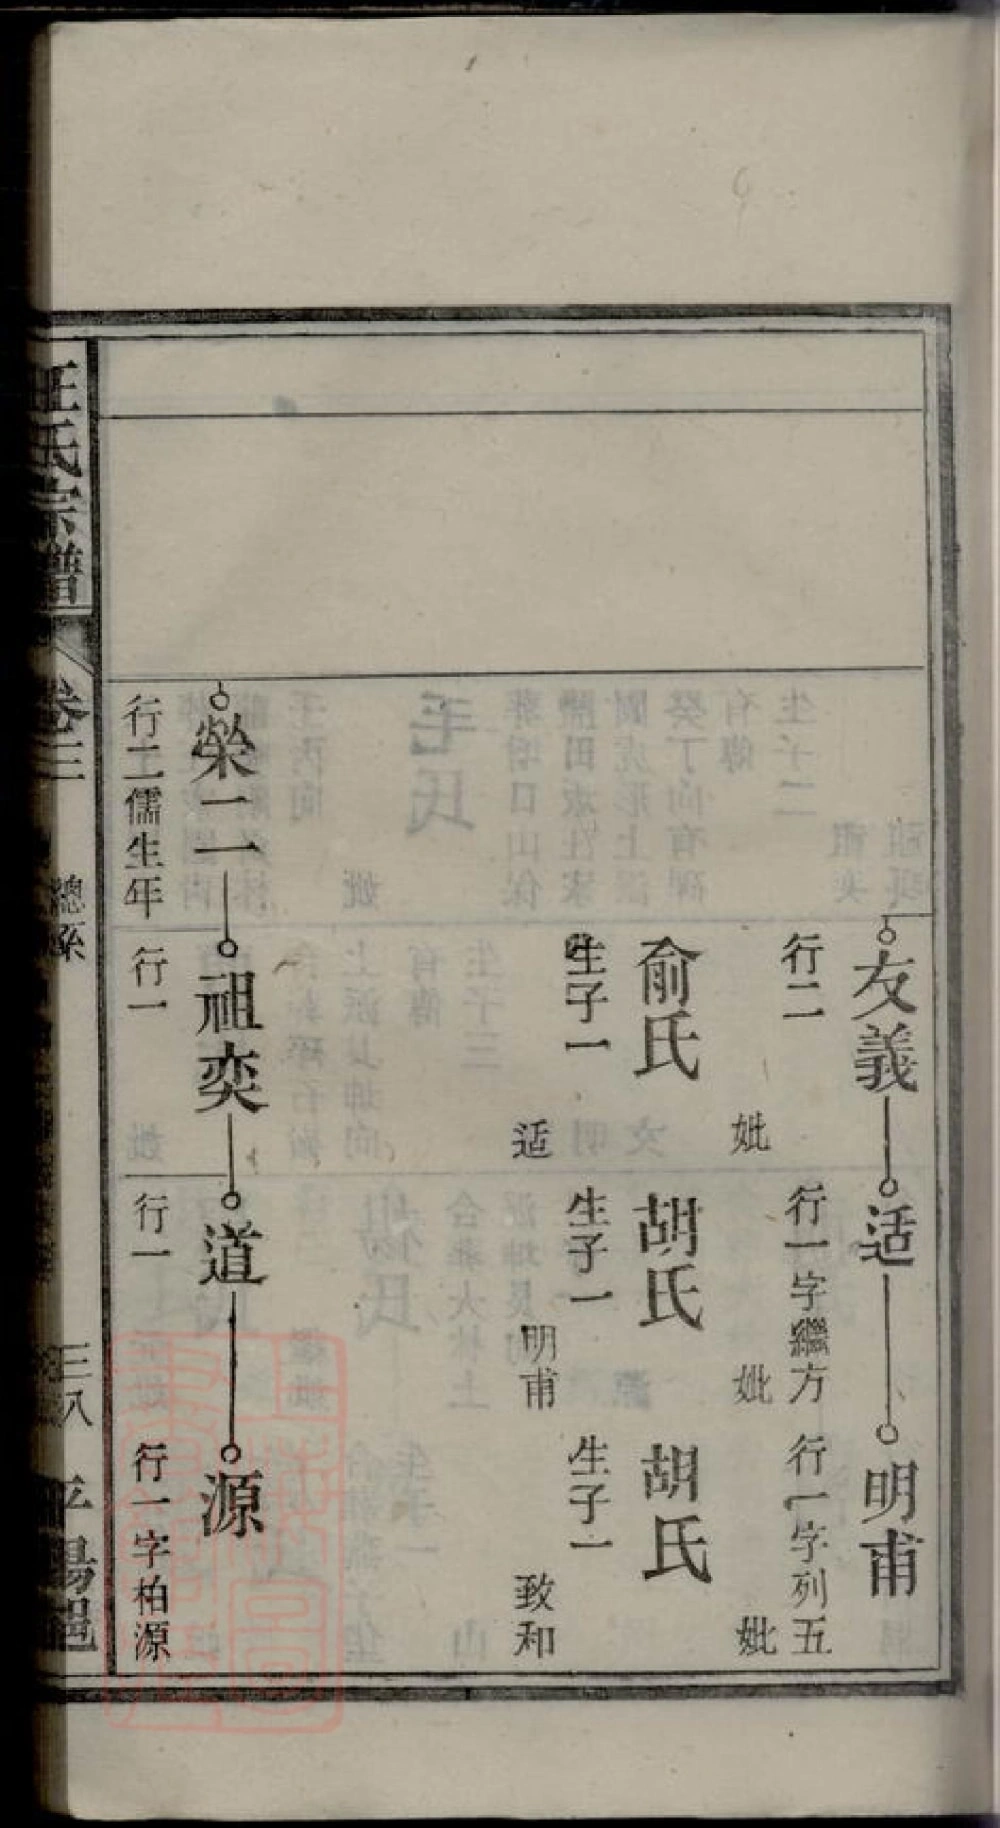 友義
行二
妣
俞氏
生子一
适
适
行一字繼方
妣
胡氏
生子一
明甫
明甫
行一字列五
妣
胡氏
生子一
致和
榮二
行二儒生年
祖奕
行一
道
行一
源
行一字柏源
汪氏宗譜
卷三
總系
三八
平陽邑